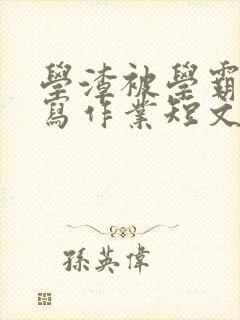 學渣被學霸
寫作業短文
孫英偉